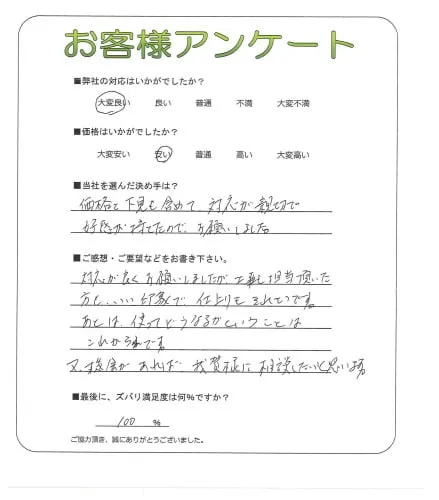 お客様アンケート
■弊社の対応はいかがでしたか？
大変良い 良い 普通 不満 大変不満
■価格はいかがでしたか？
大変安い 安い 普通 高い 大変高い
■当社を選んだ決め手は？
価格と下見も含めて、対応が親切で
好感が持てたので、お願いしました
■ご感想・ご要望などをお書き下さい。
対応が良くお願いしましたが工事も担当頂いた
方も、いい印象で、仕上りもきれいです
あとは、使ってどうなるかということは
これからです
又、機会があれば、 様に相談したいと思います
■最後に、ズバリ満足度は何％ですか？
100 ％
ご協力頂き、誠にありがとうございました。